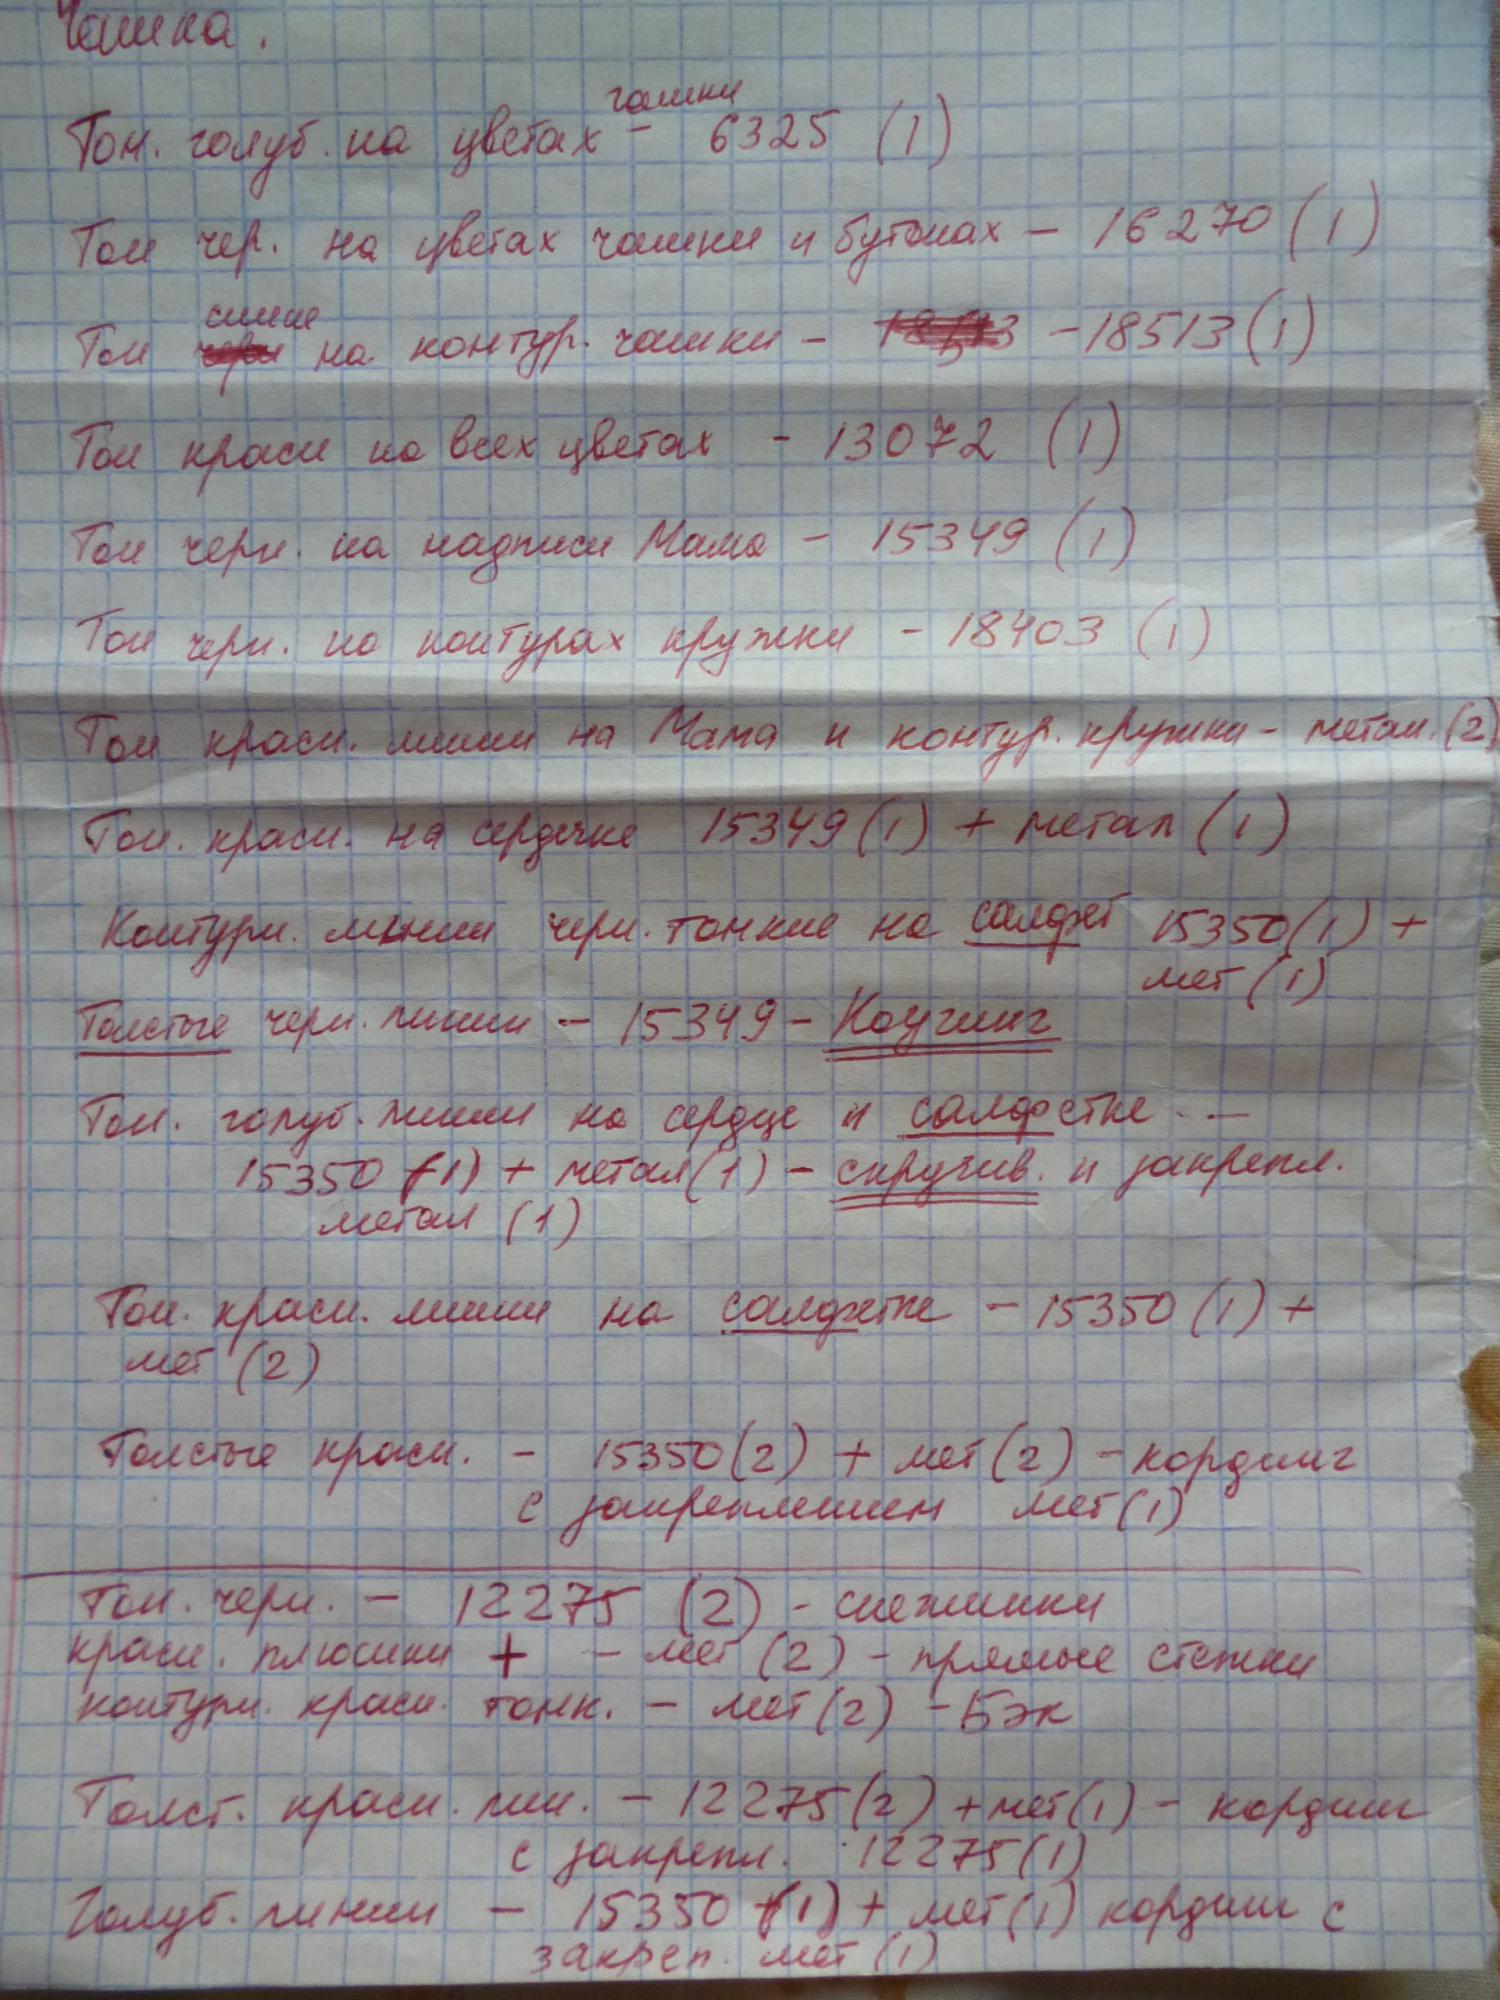 Чашка.
чашки
Тон. голуб. на цветах - 6325 (1)
Тон чер. на цветах чашки и бутонах - 16270 (1)
синие
Тон на контур. чашки - - 18513 (1)
Тон красн на всех цветах - 13072 (1)
Тон черн. на надписи Мама - 15349 (1)
Тон черн. на контурах кружки - 18403 (1)
Тон красн. линии на Мама и контур. кружки - метал. (2)
Тон. красн. на сердечке 15349 (1) + метал (1)
Контурн. линии черн. тонкие на салфет 15350 (1) +
мет (1)
Толстые черн. линии - 15349 - Коучинг
Тон. голуб. линии на сердце и салфетке -
15350 (1) + метал (1) - скручив. и закрепл.
метал (1)
Тон. красн. линии на салфетке - 15350 (1) +
мет (2)
Толстые красн. - 15350 (2) + мет (2) - кординг
с закреплением мет (1)
Тон. черн. - 12275 (2) - снежинки
красн. плюсики + - мет (2) - прямые стежки
контурн. красн. тонк. - мет (2) - Бэк
Толст. красн. лин. - 12275 (2) + мет (1) - кординг
с закрепл. 12275 (1)
Голуб. линии - 15350 (1) + мет (1) кординг с
закреп. мет (1)